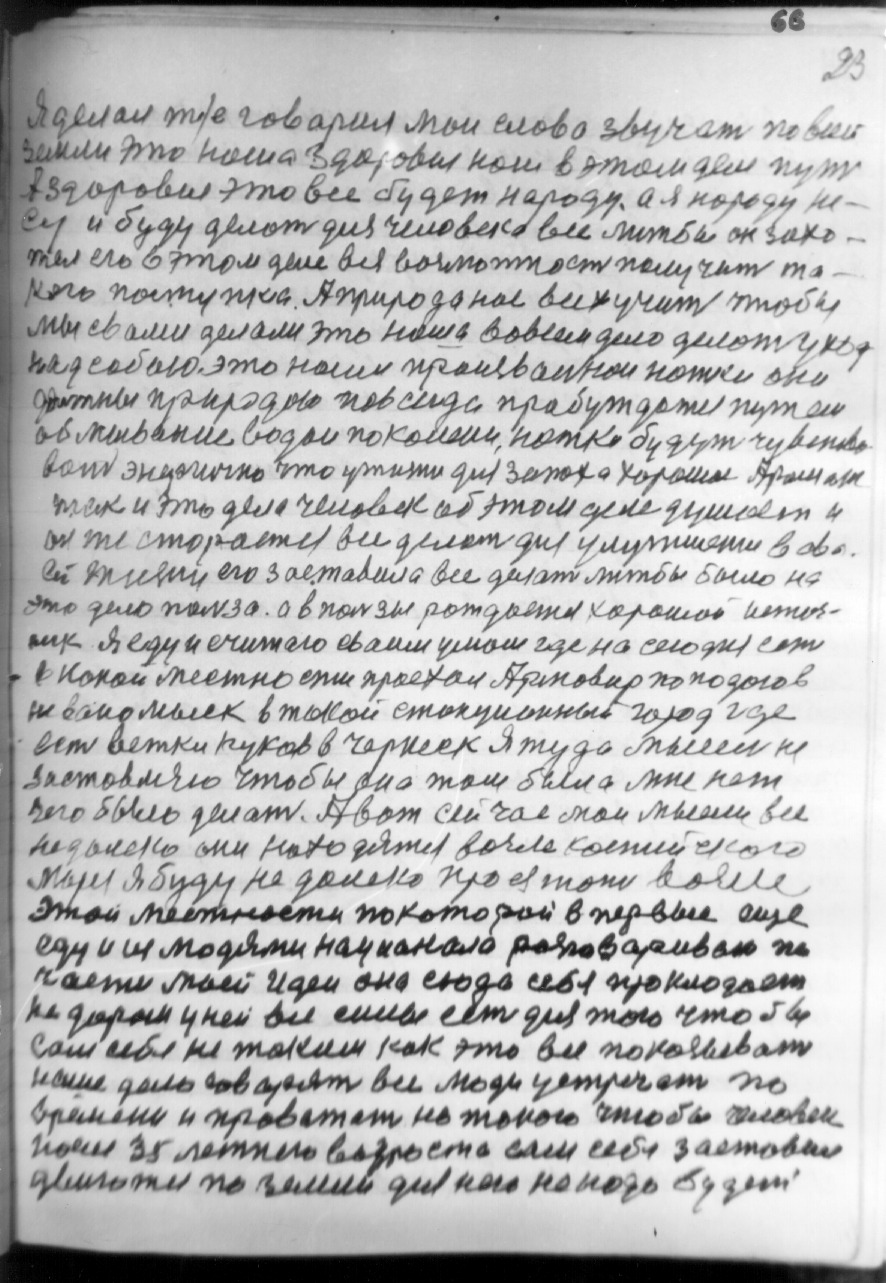 66
23
Я делал и говарил мои слова звучат по всей
земли это наша здоровья наш в этом деле пут
А здоровья это все будет народу. а я народу не-
су и буду делат для человека все лиш бы он захо-
тел его в этом деле вся возможност получит та-
кого поступка. А природа нас всех учит чтобы
мы свами делали это наша вовсем дело делат уход
над собаю. это наши ножки они
природаю повсегда пробуждатся путем
водаи по колени, ножки будут чувство
ват энргично что для запаха хорошая
так и это дела человек об этом деле думает и
он же старается все делат для улутшения в сво-
ей жизни его заставила все делат лишбы было на
это дело полза. а в ползы рождается хороший источ-
ник Я еду и считаю сваим умом где на сегодня ест
в какой местности проехал Армовир попадаю в
невиномыск в такой станционный город где
ест ветки в Черкеск Я туда мысли не
заставляю чтобы она там была мне нет
чего было делат. А вот сейчас мои мысли все
недалеко они находятся возле каспийского
моря Я буду не далеко проезжат возле
этой местности по которой в первые еще
еду и с людями начинаю разговариват по
части маей идеи она сюда себя прокладает
не даром у ней все силы ест для того чтобы
сам себя не таким как это все показыват
наше дело говорят все люди устречат по
времени и проважат на такого чтобы человек
после 35 летнего возроста сам себя заставил
двигатся по земли для него не надо будет